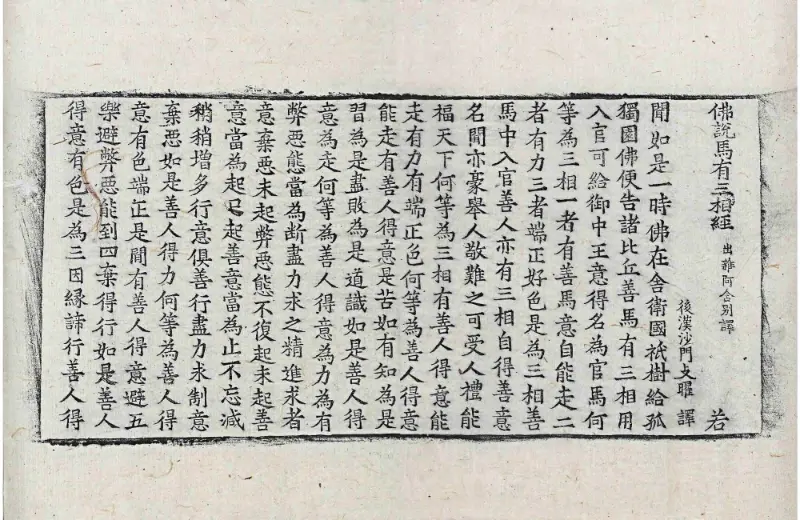 佛說馬有三相經 出雜阿含別譯 若
後漢沙門支曜 譯
聞如是一時佛在舍衛國祇樹給孤
獨園佛便告諸比丘善馬有三相用
入官可給御中王意得名為官馬何
等為三相一者有善馬意自能走二
者有力三者端正好色是為三相善
馬中入官善人亦有三相自得善意
名聞亦豪舉人敬難之可受人禮能
福天下何等為三相有善人得意能
走有力有端正色何等為善人得意
能走有善人得意是苦如有知為是
習為是盡敗為是道識如是善人得
意為走何等為善人得意為力為有
弊惡態當為断盡力求之精進求者
意棄惡未起弊惡態不復起未起善
意當為起已起善意當為止不忘減
稍稍增多行意俱善行盡力求制意
棄惡如是善人得力何等為善人得
意有色端正是間有善人得意避五
樂避弊惡能到四棄得行如是善人
得意有色是為三因緣諦行善人得